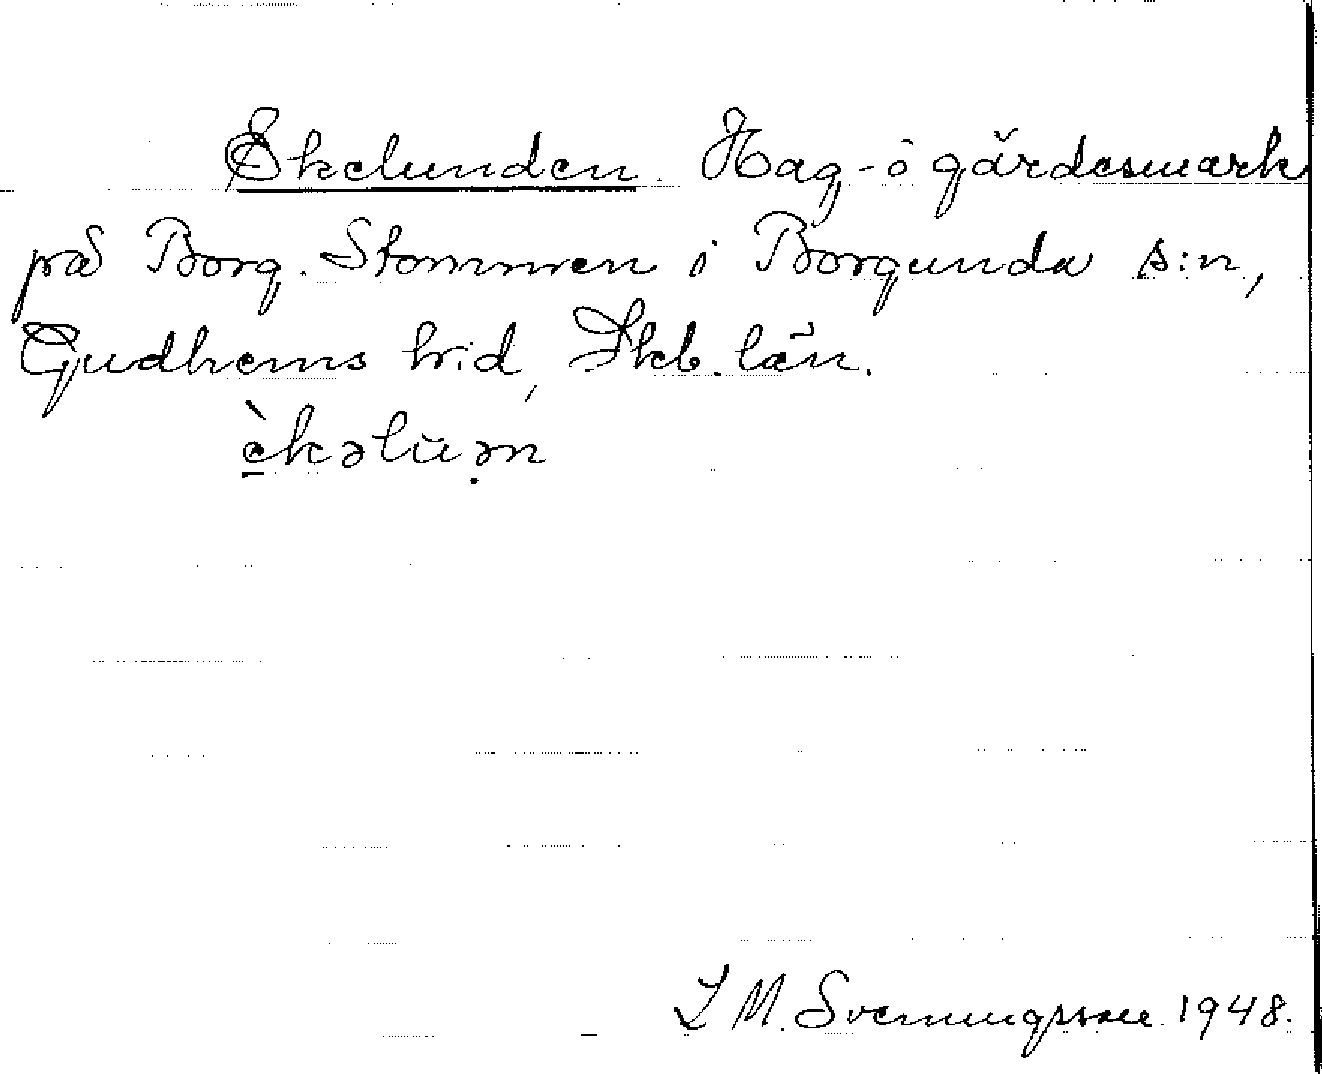 Ekelunden. Hag- o gärdesmark
på Borg. Stommen i Borgunda s:n,
Gudhems hd, Skb. län.
èkəlùən
L M. Svenungsson 1948.